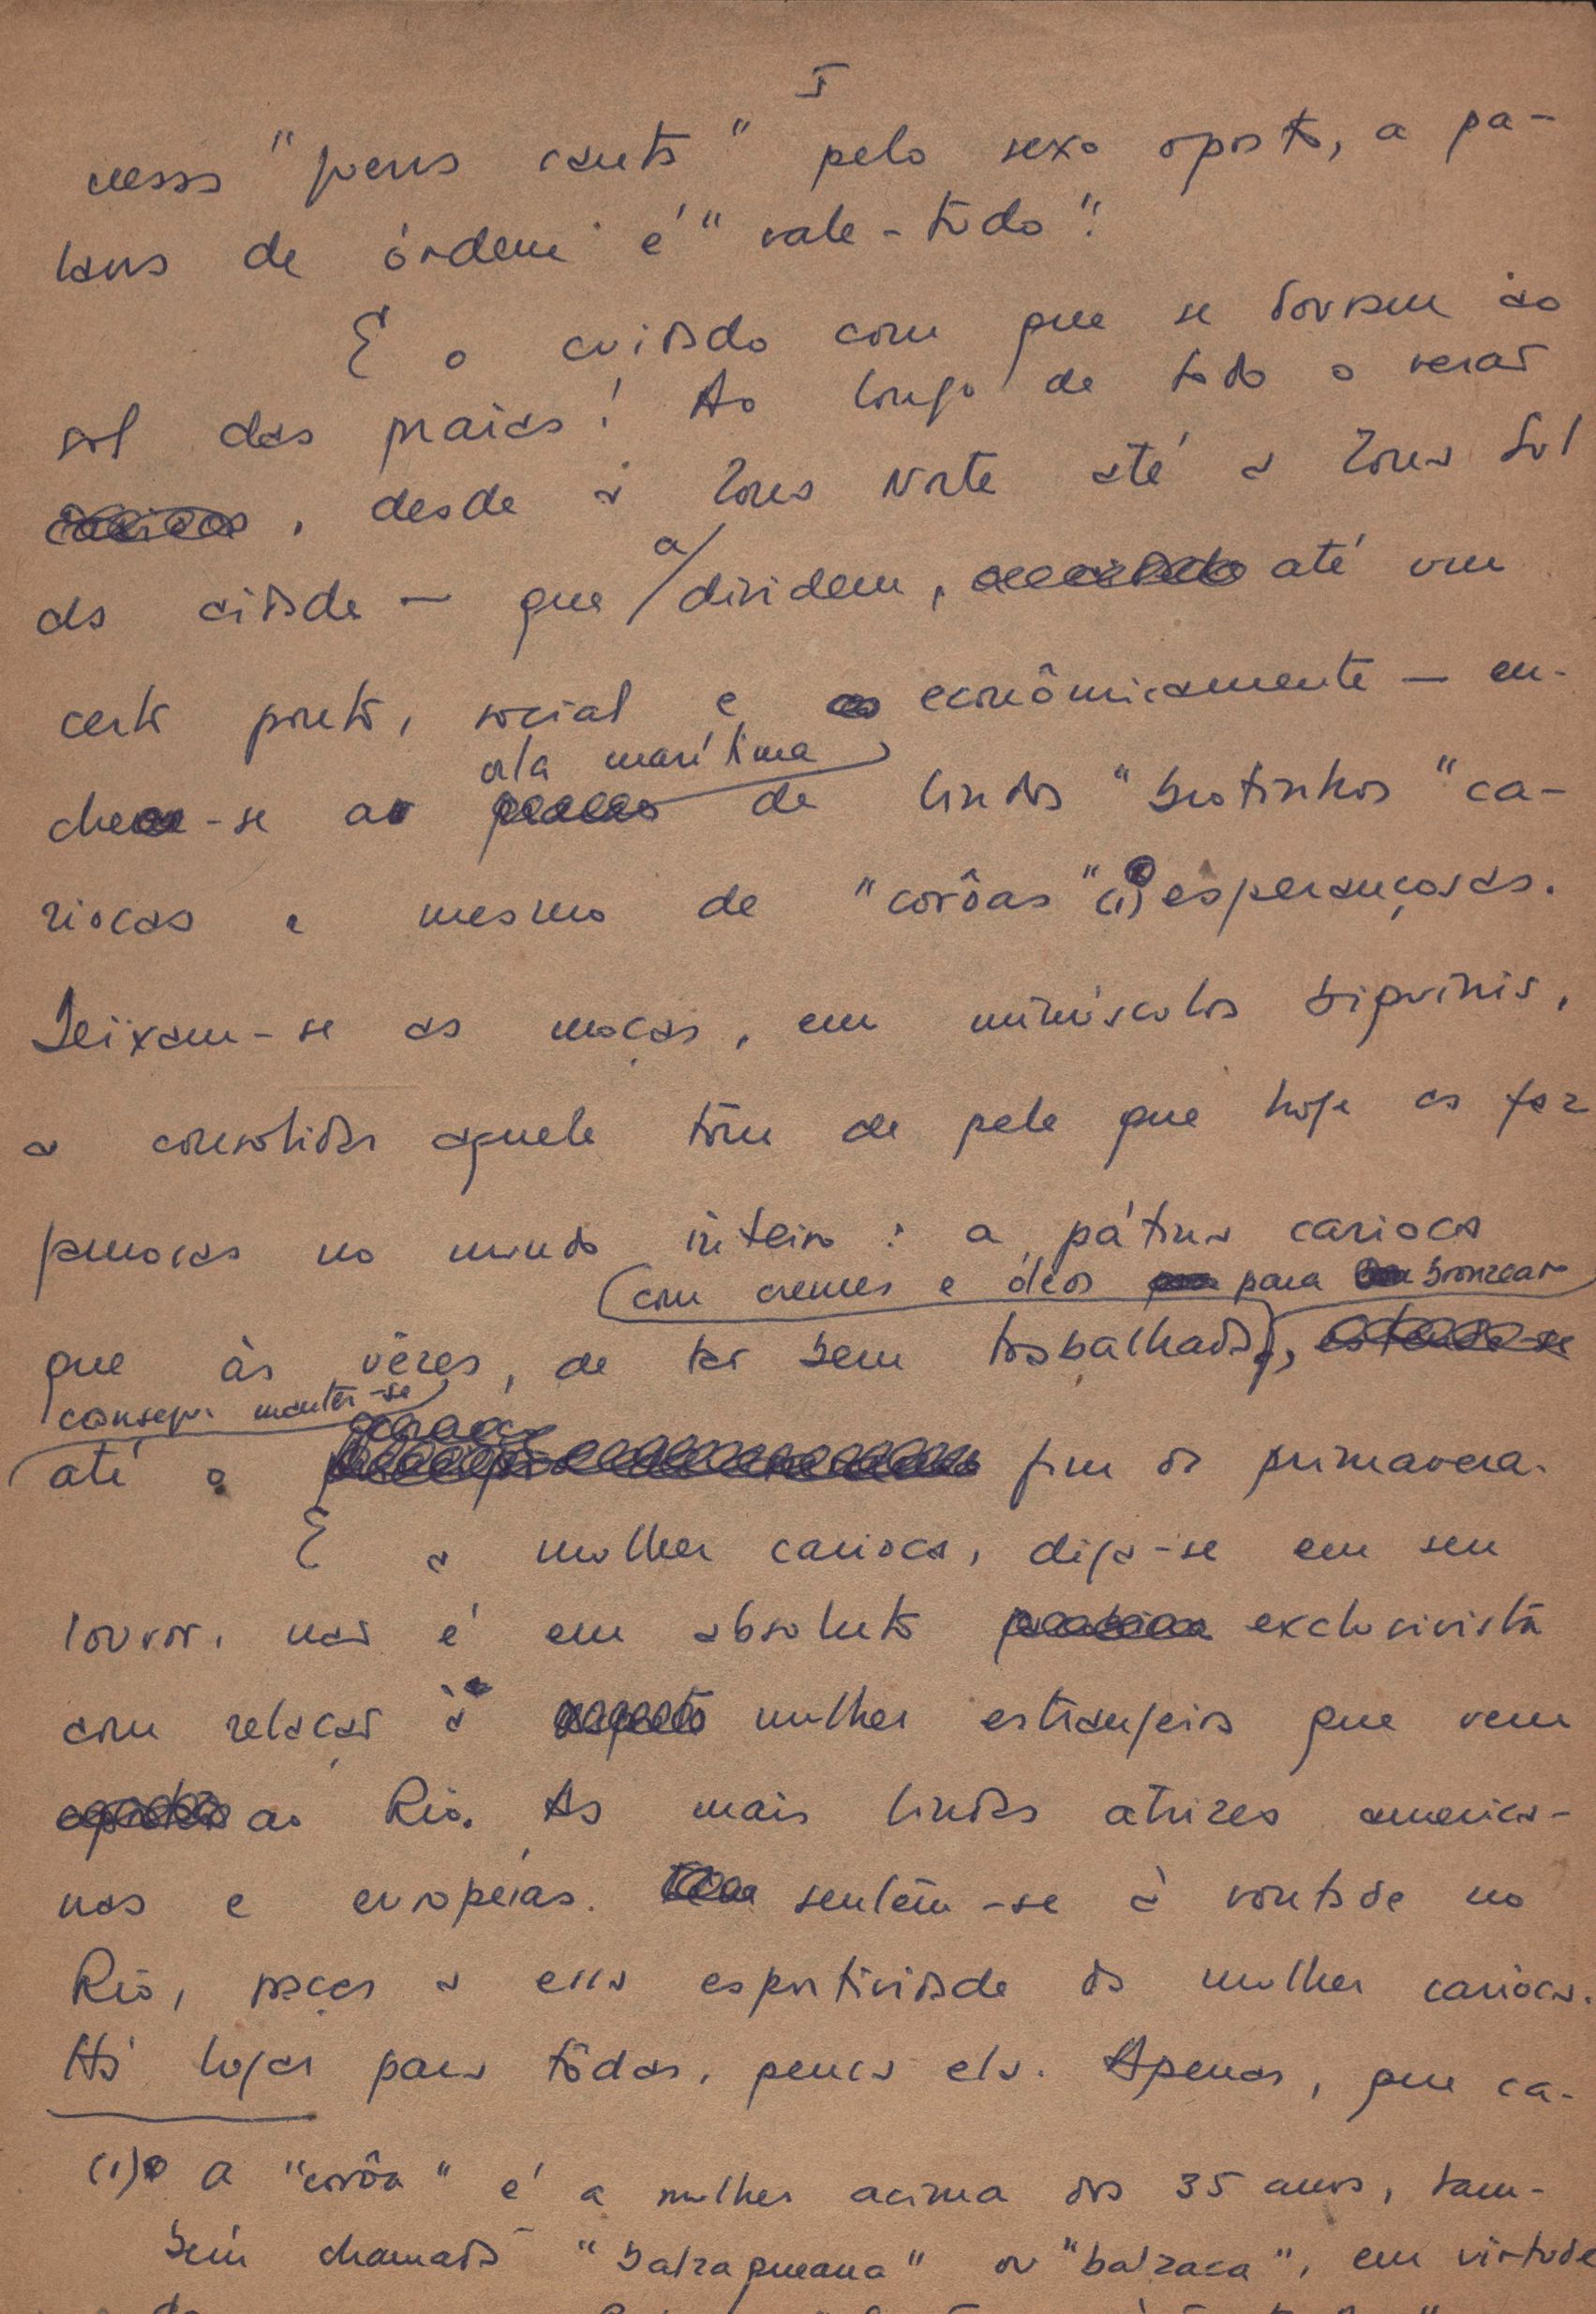 I
nessa "guerra santa" pelo sexo oposto, a pa-
lavra de órdem é "vale-tudo".
E o cuidado com que se douram ao
sol das praias! Ao longo de todo o verão
, desde a Zona Norte até a Zona Sul
da cidade — que a dividem, até um
certo ponto, social e econômicamente — en-
che-se a orla marítima de lindos "brotinhos" ca-
riocas e mesmo de "corôas" (1) esperançosas.
Deixam-se as moças, em minúsculos biquínis,
a consolidar aquele tom de pele que hoje as faz
famosas no mundo inteiro: a pátina carioca
(com cremes e óleos para bronzear
que às vêzes, de tão bem trabalhada,
consegue manter-se
até o fim da primavera.
E a mulher carioca, diga-se em seu
louvor, não é em absoluto exclusivista
com relação à mulher estrangeira que vem
ao Rio. As mais lindas atrizes america-
nas e européias. sentem-se à vontade no
Rio, graças a essa esportividade da mulher carioca.
Há lugar para tôdas, pensa ela. Apenas, que ca-
(1) A "corôa" é a mulher acima dos 35 anos, tam-
bém chamada "balzaqueana" ou "balzaca", em virtude